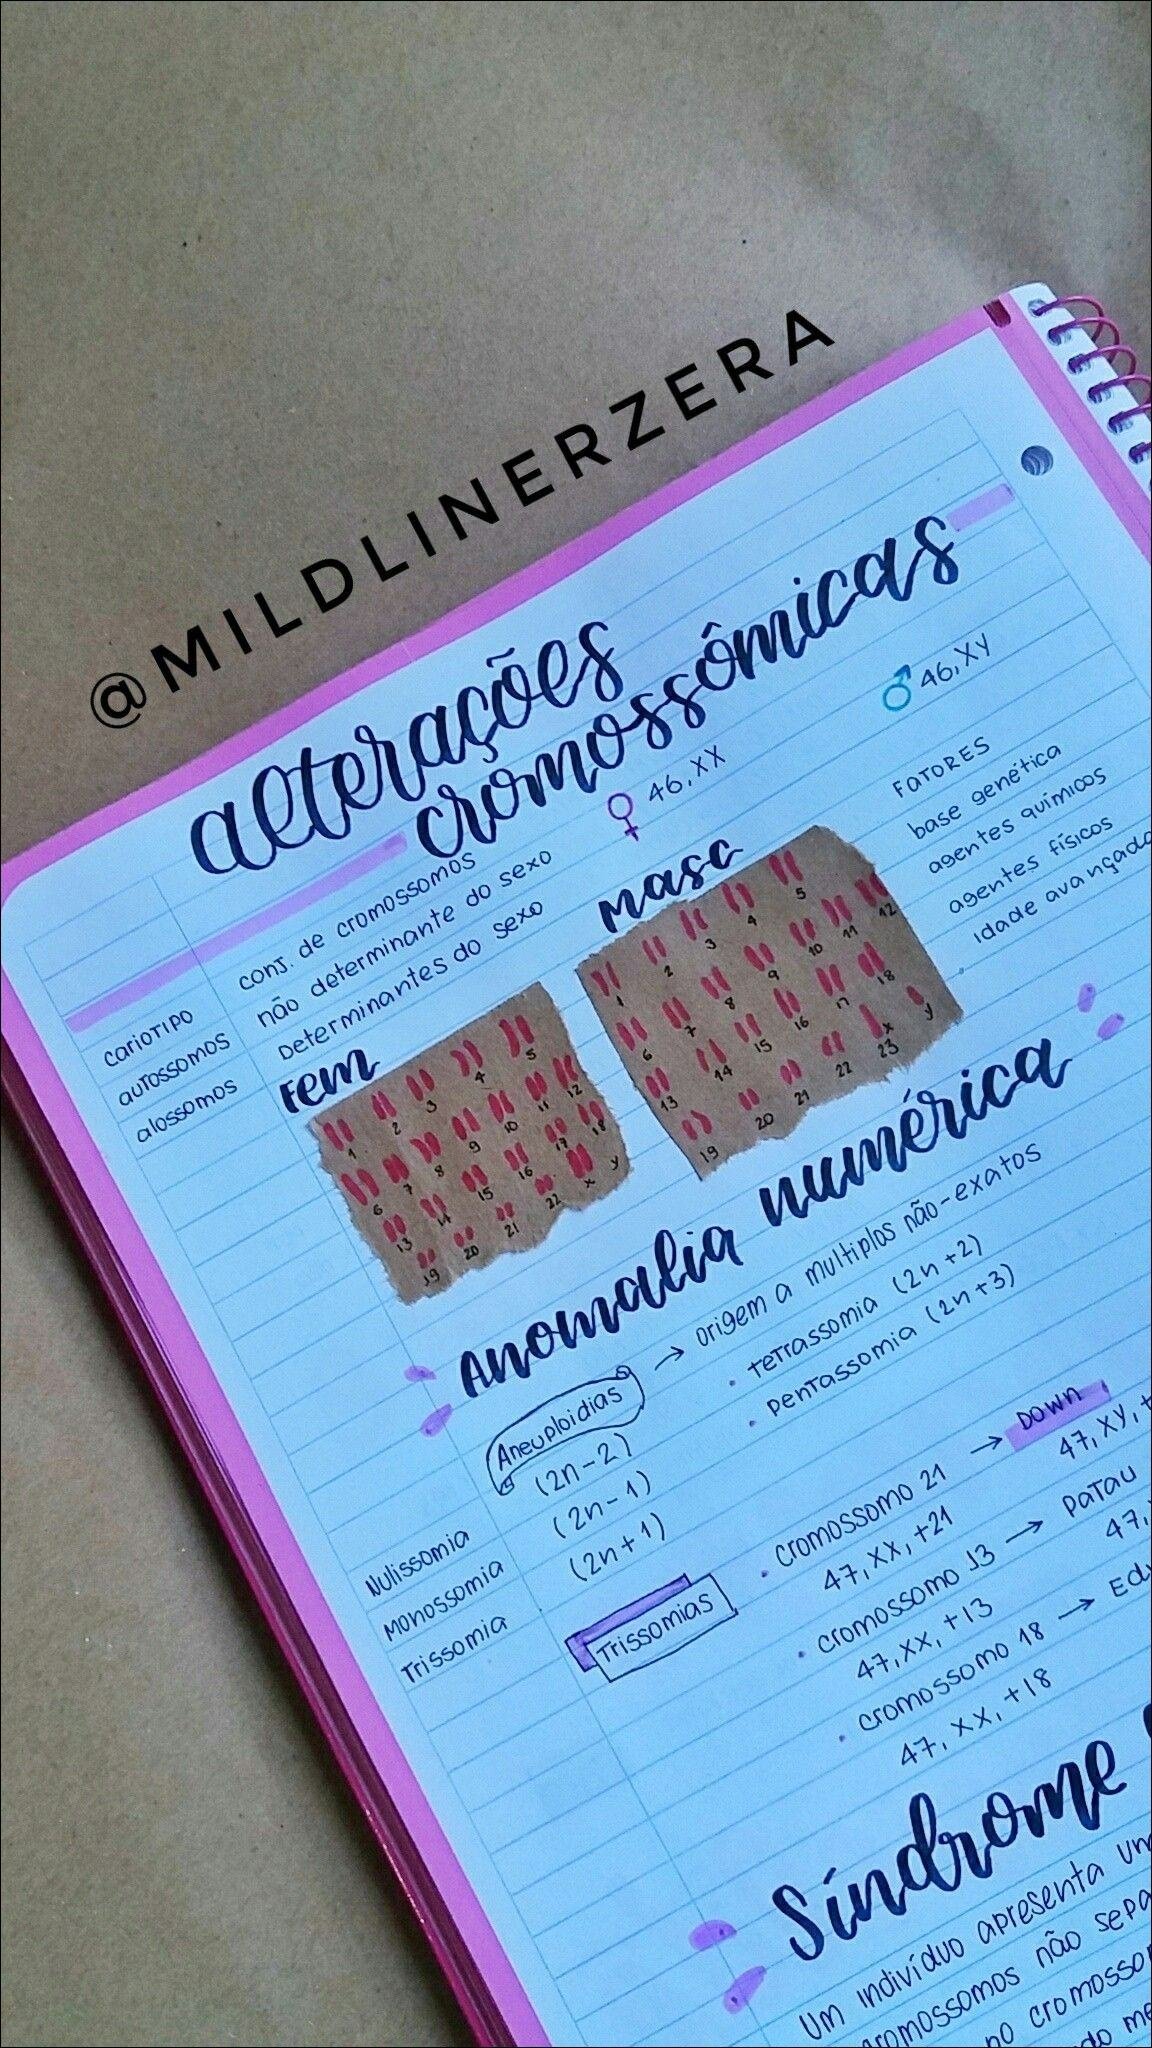 @MILDLINERZERA
alterações
cromossômicas
♀ 46, XX
♂ 46, XY
cariotipo conj. de cromossomos
autossomos não determinante do sexo
alossomos Determinantes do sexo
FATORES
base genética
agentes químicos
agentes físicos
idade avançada
Fem
1 2 3 4 5
6 7 8 9 10 11 12
13 14 15 16 17 18
19 20 21 22 x y
masc
1 2 3 4 5
6 7 8 9 10 11 12
13 14 15 16 17 18
19 20 21 22 23 x y
Anomalia numérica
Aneuploidias → origem a multiplos não-exatos
Nulissomia (2n-2)
Monossomia (2n-1)
Trissomia (2n+1)
• tetrassomia (2n+2)
• pentassomia (2n+3)
Trissomias
• cromossomo 21 → DOWN
47, XX, +21 47, XY,
• cromossomo 13 → patau
47, XX, +13 47,
• cromossomo 18 →
47, XX, +18
Síndrome
Um indivíduo apresenta
cromossomos não
no